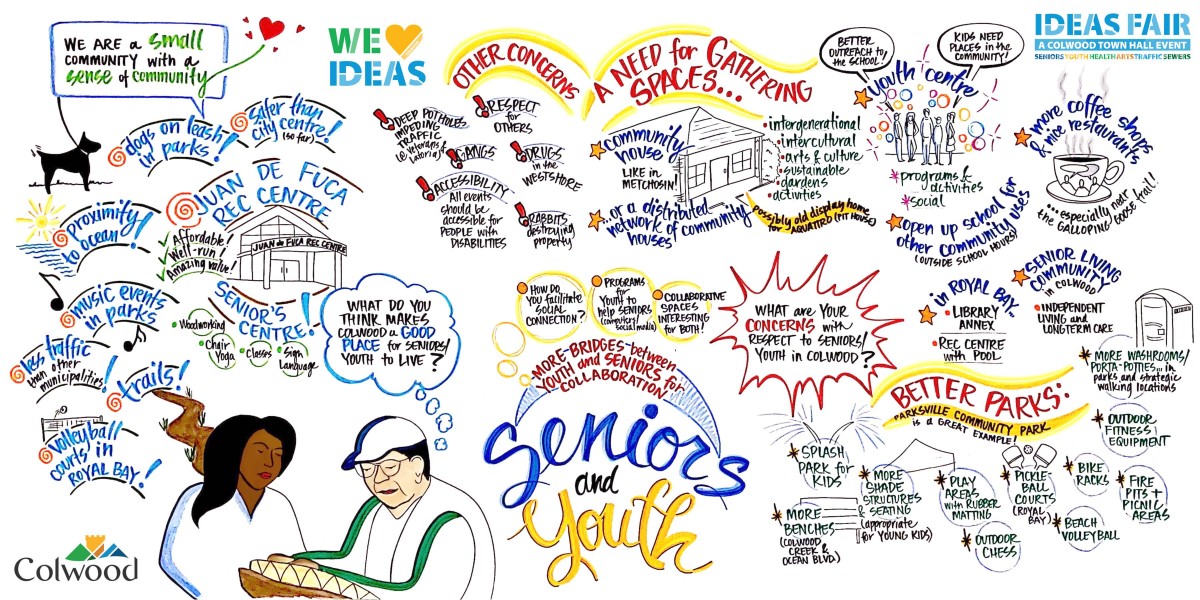 WE ARE a small
COMMUNITY with a
sense of community
WE
IDEAS
OTHER CONCERNS
A NEED for GATHERING
SPACES...
BETTER
OUTREACH to
the SCHOOL!
KIDS NEED
PLACES in the
COMMUNITY!
IDEAS FAIR
A COLWOOD TOWN HALL EVENT
SENIORS YOUTH HEALTH ARTS TRAFFIC SEWERS
dogs on leash
in parks!
safer than
city centre!
(so far)
JUAN DE FUCA
REC CENTRE
Affordable!
Well-run!
Amazing value!
JUAN de FUCA REC CENTRE
proximity
to ocean!
music events
in parks
SENIOR'S
CENTRE!
Woodworking
Chair
Yoga
Classes
Sign
Language
less traffic
than other
municipalities!
trails!
volleyball
courts in
ROYAL BAY!
WHAT DO YOU
THINK MAKES
COLWOOD a GOOD
PLACE for SENIORS/
YOUTH to LIVE?
DEEP POTHOLES
IMPEDING
TRAFFIC
RESPECT
for
OTHERS
GANGS
DRUGS
in the
WESTSHORE
ACCESSIBILITY
All events
should be
accessible for
PEOPLE with
DISABILITIES
RABBITS
destroying
property
community
house
LIKE in
METCHOSIN!
...or a distributed
network of community
houses
• intergenerational
• intercultural
• arts & culture
• sustainable
• gardens
• activities
possibly old display home
youth centre
* programs &
activities
* social
open up school for
other community uses
(OUTSIDE SCHOOL HOURS)
more coffee shops
& nice restaurants
...especially near
the GALLOPING GOOSE trail!
in ROYAL BAY...
• LIBRARY
ANNEX
• REC CENTRE
with POOL
SENIOR LIVING
COMMUNITY
in COLWOOD
• INDEPENDENT
LIVING and
LONGTERM CARE
HOW DO
YOU FACILITATE
SOCIAL
CONNECTION?
PROGRAMS
for
YOUTH to
help SENIORS
(computers/
social media)
COLLABORATIVE
SPACES
INTERESTING
for BOTH!
MORE BRIDGES between
YOUTH and SENIORS for
COLLABORATION
Seniors
and
Youth
WHAT are YOUR
CONCERNS with
RESPECT to SENIORS/
YOUTH in COLWOOD?
BETTER PARKS:
PARKSVILLE COMMUNITY PARK
is a GREAT EXAMPLE!
MORE WASHROOMS/
PORTA-POTTIES... in
parks and strategic
walking locations
OUTDOOR
FITNESS
EQUIPMENT
SPLASH
PARK for
KIDS
MORE
BENCHES
(COLWOOD
CREEK &
OCEAN BLVD.)
MORE
SHADE
STRUCTURES
& SEATING
(appropriate
for YOUNG KIDS)
PLAY
AREAS
with RUBBER
MATTING
OUTDOOR
CHESS
PICKLE-
BALL
COURTS
(ROYAL
BAY)
BIKE
RACKS
BEACH
VOLLEYBALL
FIRE
PITS +
PICNIC
AREAS
Colwood